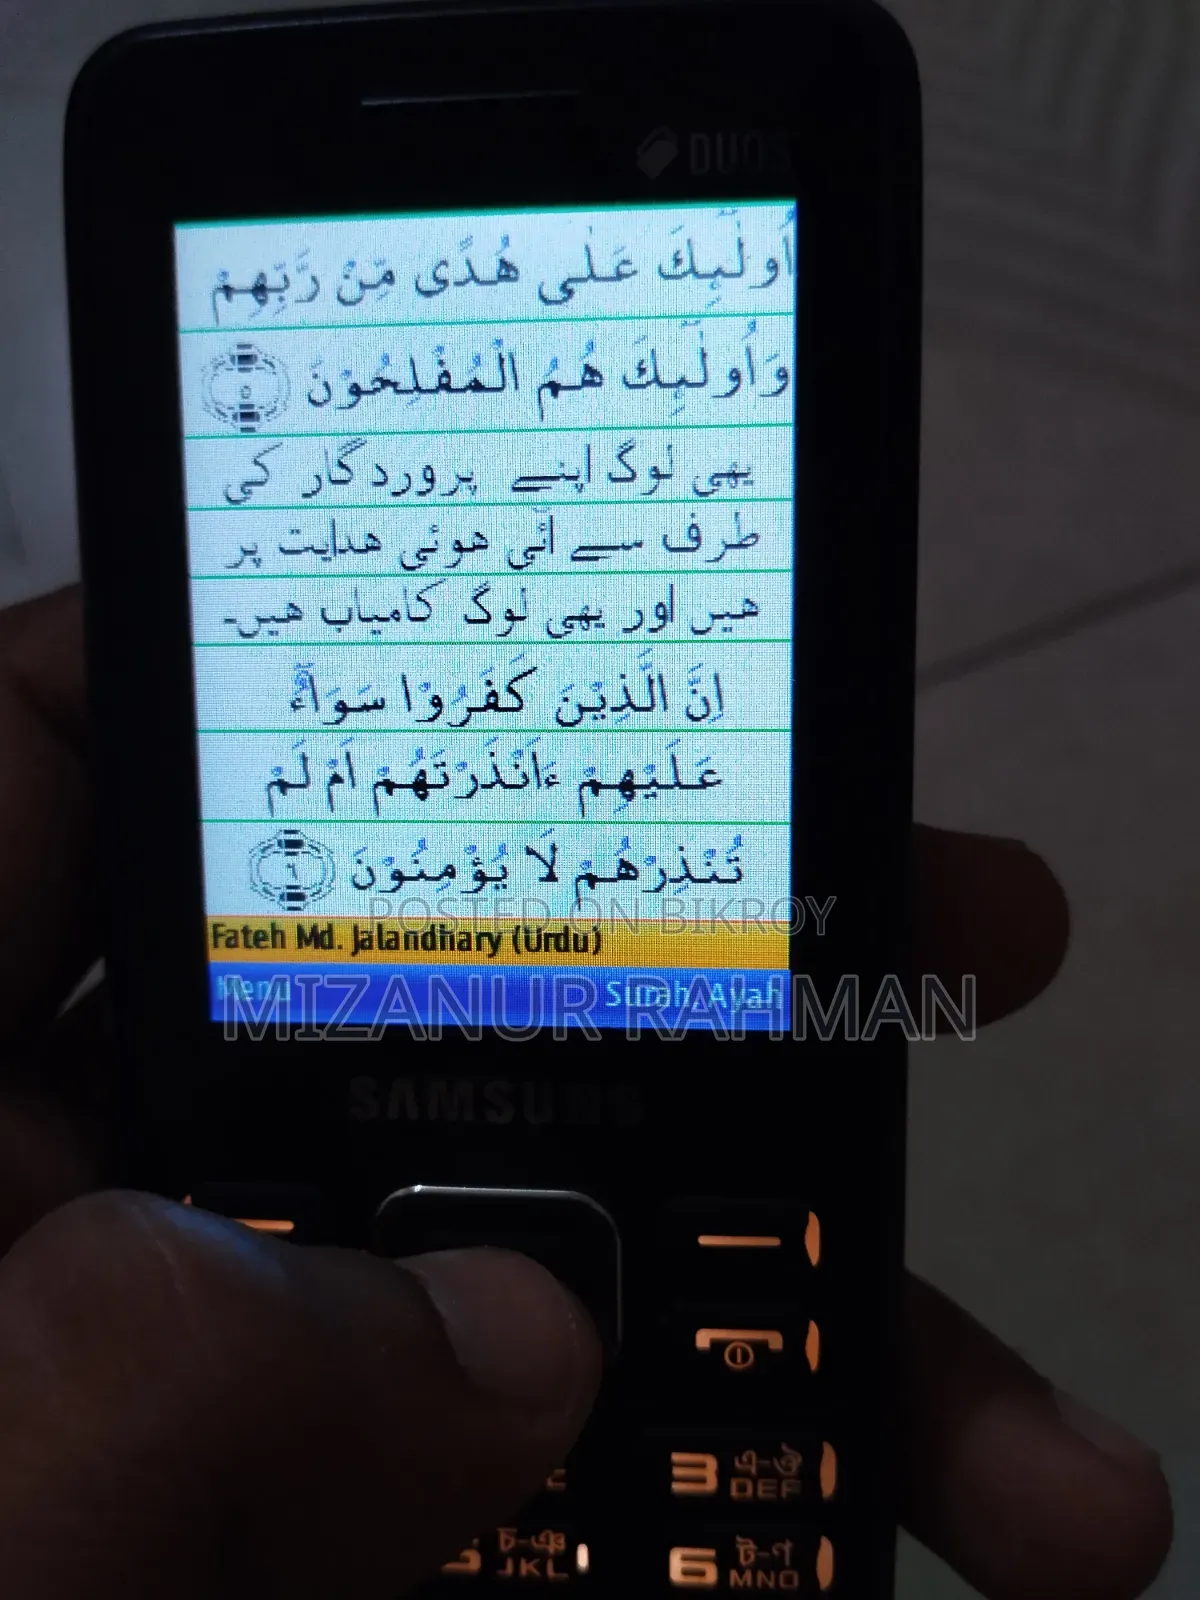 DUOS
اُولٰٓئِكَ عَلٰى هُدًى مِّنْ رَّبِّهِمْ
وَاُولٰٓئِكَ هُمُ الْمُفْلِحُوْنَ ٥
یهی لوگ اپنے پروردگار کی
طرف سے آئی هوئی هدایت پر
هیں اور یهی لوگ کامیاب هیں۔
اِنَّ الَّذِيْنَ كَفَرُوْا سَوَآءٌ
عَلَيْهِمْ ءَاَنْذَرْتَهُمْ اَمْ لَمْ
تُنْذِرْهُمْ لَا يُؤْمِنُوْنَ ٦
POSTED ON BIKROY
Fateh Md. Jalandhary (Urdu)
Menu Surah, Ayah
MIZANUR RAHMAN
SAMSUNG
3 এ-জ
DEF
চ-ঞ
JKL
6 ট-প
MNO